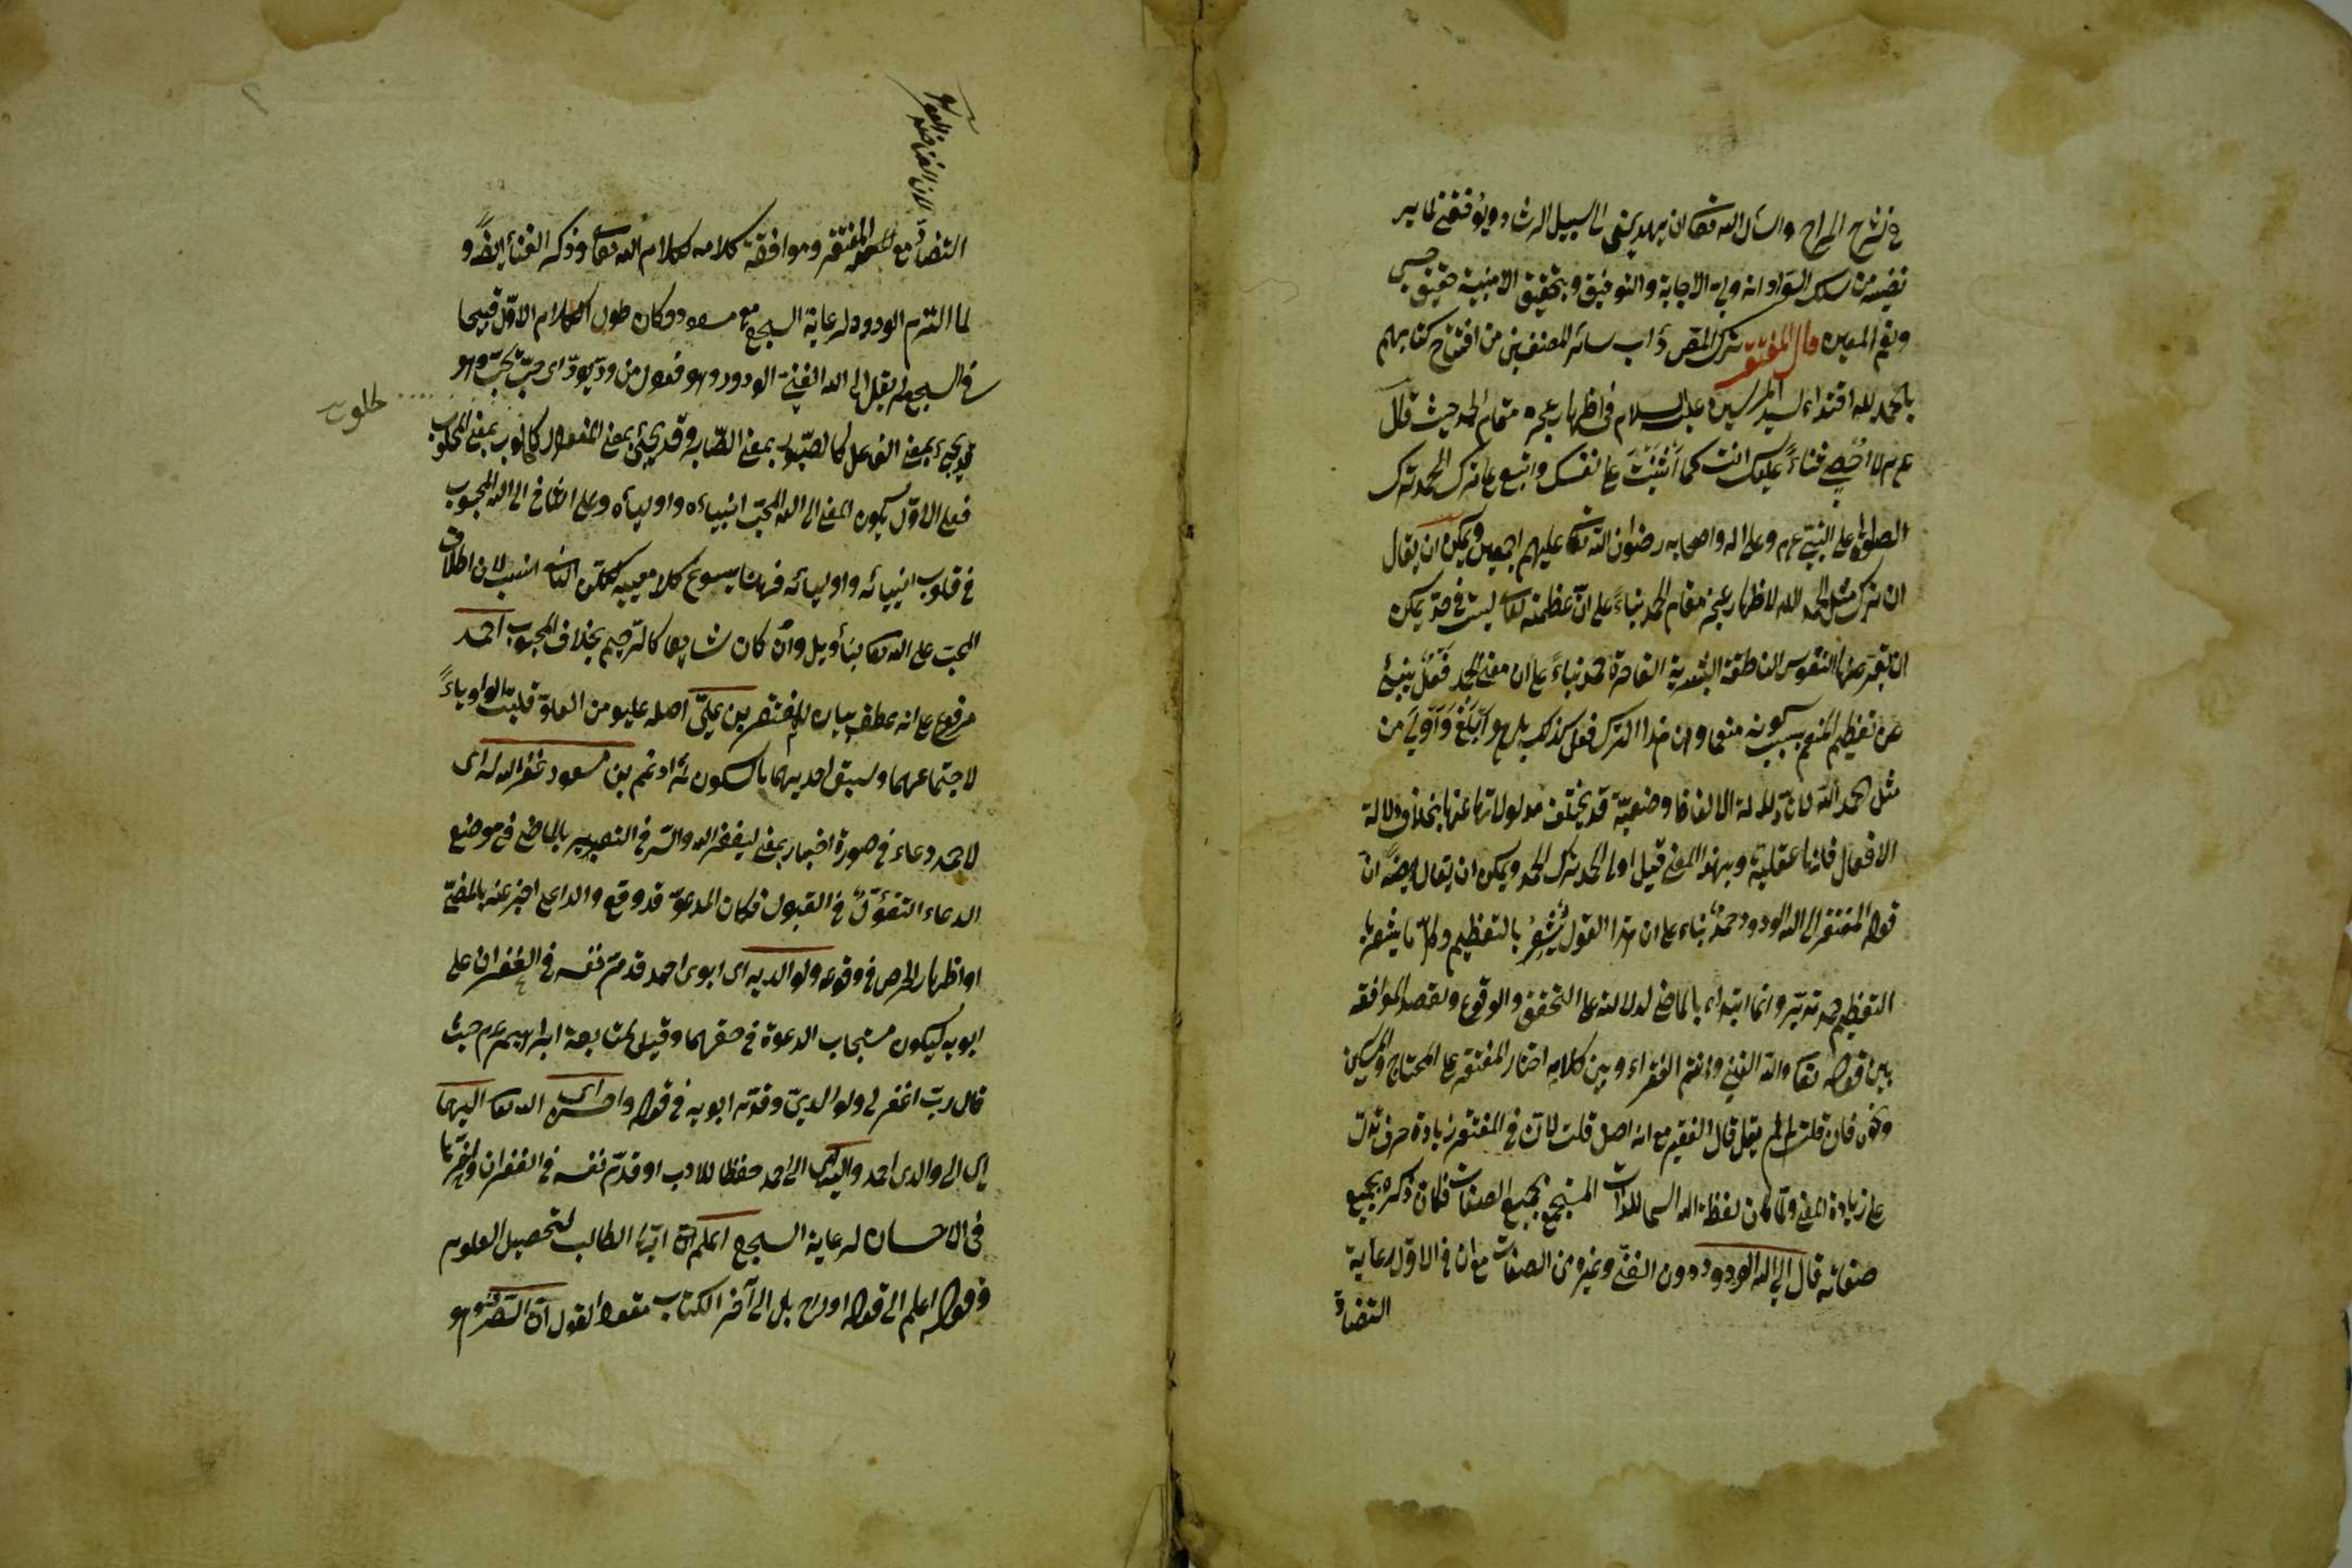 في شرح المراح واسأل الله تعالى ان يهديني الى سبيل الرشاد ويوفقني لما يير
نفيسه من سلك السؤاد انه ولي الاجابة والتوفيق وبتحقيق الامنية حقيق حسبي
ونعم المعين قال المفتقر ترك المص دأب سائر المصنفين من افتتاح كتابهم
بالحمد لله اقتداء لسيد المرسلين عليه السلام في اظهار عجزه مقام الحمد حيث قال
عم لا احصي ثناءً عليك انت كما أثنيت على نفسك واتبع على ترك الحمد ترك
الصلوة على النبي عم وعلى اله واصحابه رضوان الله تعالى عليهم اجمعين ويمكن ان يقال
ان ترك مثل الحمد لله لاظهار عجز مقام الحمد بناءً على انّ عظمته تعالى ليست في حدّ يمكن
ان تقرضها النفوس الناطقة البشرية القاصرة حمد بناءً على ان معنى الحمد فعل ينبئ
عن تعظيم المنعم بسبب كونه منعما وان هذا الترك فعل كذلك بل هو أبلغ وأولى من
مثل الحمد لله لانّ دلالة الالفاظ وضعيّة قد يختلف مدلولاتها عنها بخلاف دلالة
الافعال فانها عقليّة وبهذا المعنى قيل اولى الحمد ترك الحمد ويمكن ان يقال ايضًا انّ
قوله المفتقر الى الله الودود حمدٌ بناء على ان هذا القول يُشعِرُ بالتعظيم وكلّ ما يشعر با
التعظيم حمد تدبّر وانما ابتداء بالماضي لدلالته على التحقق والوقوع ولقصد الموافقة
بين قوله تعالى والله الغني وانتم الفقراء وبين كلامه اختار المفتقر على المحتاج والمسكين
ونحوه فان قلت لم لم يقل قال الفقير مع انه اصل قلت لانّ في المفتقر زيادة حرف تدلّ
على زيادة المعنى ولمّا كان لفظة الله اسما للذات المستجمع بجميع الصفات فكان ذكره بجميع
صفاته قال الى الله الودود دون الغنيّ وغيره من الصفات مع ان في الاول رعاية
التضادّ
التضادّ مع المفتقر وموافقة كلامه لكلام الله تعالى وذكر الغنىّ ايضًا و
لما التزم الودود لرعاية السجع مع مسعود وكان طول الكلام الاوّل قبيحا
في السجع لم يقل الى الله الغنيّ الودود وهو فعول من ودّ يودّ اى حبّ يحبّ وهو
قد يجيء بمعنى الفاعل كالصبور بمعنى الصّابر وقد يجيء بمعنى المفعول كالحلوب بمعنى المحلوب
فعلى الاوّل يكون المعنى الى الله المحبّ انبياءه واولياءه وعلى الثاني الى الله المحبوب
في قلوب انبيائه واوليائه فههنا يسوغ كلا معنييه لكنّ الثاني انسب لان اطلاق
المحبّ على الله تعالى بتأويل وان كان شايعا كالرحيم بخلاف المحبوب احمد
مرفوع على انه عطف بيان للمفتقر بن عليّ اصله عليو من العلوّ قلبت الواو ياءً
لاجتماعهما وسبق احديهما بالسكون ثم ادغم بن مسعود غفر الله له اى
لاحمد دعاء في صورة اخبار بمعنى ليغفر الله والسّر في التعبير بالماضي في موضع
الدعاء التفؤّل في القبول فكان المدعوّ قد وقع والداعى اخبر عنه بالمضيّ
او اظهار الحرص في وقوعه ولوالديه اى ابوى احمد قدّم نفسه في الغفران على
ابويه ليكون مستجاب الدعوة في حقهما وقيل لمتابعة ابراهيم عم حيث
قال ربّ اغفر لى ولوالديّ وقدّم ابويه في قوله واحسن اى الله تعالى اليهما
اى الى والدى احمد واليه اى الى احمد حفظا للادب او قدّم نفسه في الغفران واخّرها
في الاحسان لرعاية السجع اعلم انّ ايّها الطالب لتحصيل العلوم
فقوله اعلم الى قوله اوراح بل الى آخر الكتاب مقول القول انّ التصريف وهو